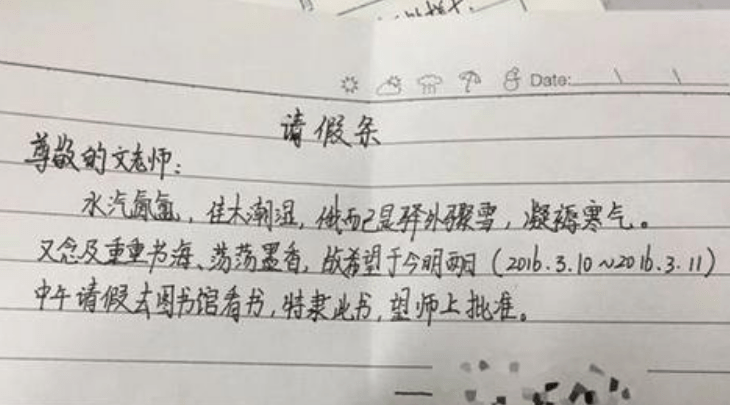 Date: \ \
请假条
尊敬的文老师：
水汽氤氲，佳木潮湿，俄而已是驿外骤雪，凝褥寒气。
又念及重重书海、荡荡墨香，故希望于今明两日（2016.3.10~2016.3.11）
中午请假去图书馆看书，特隶此书，望师上批准。